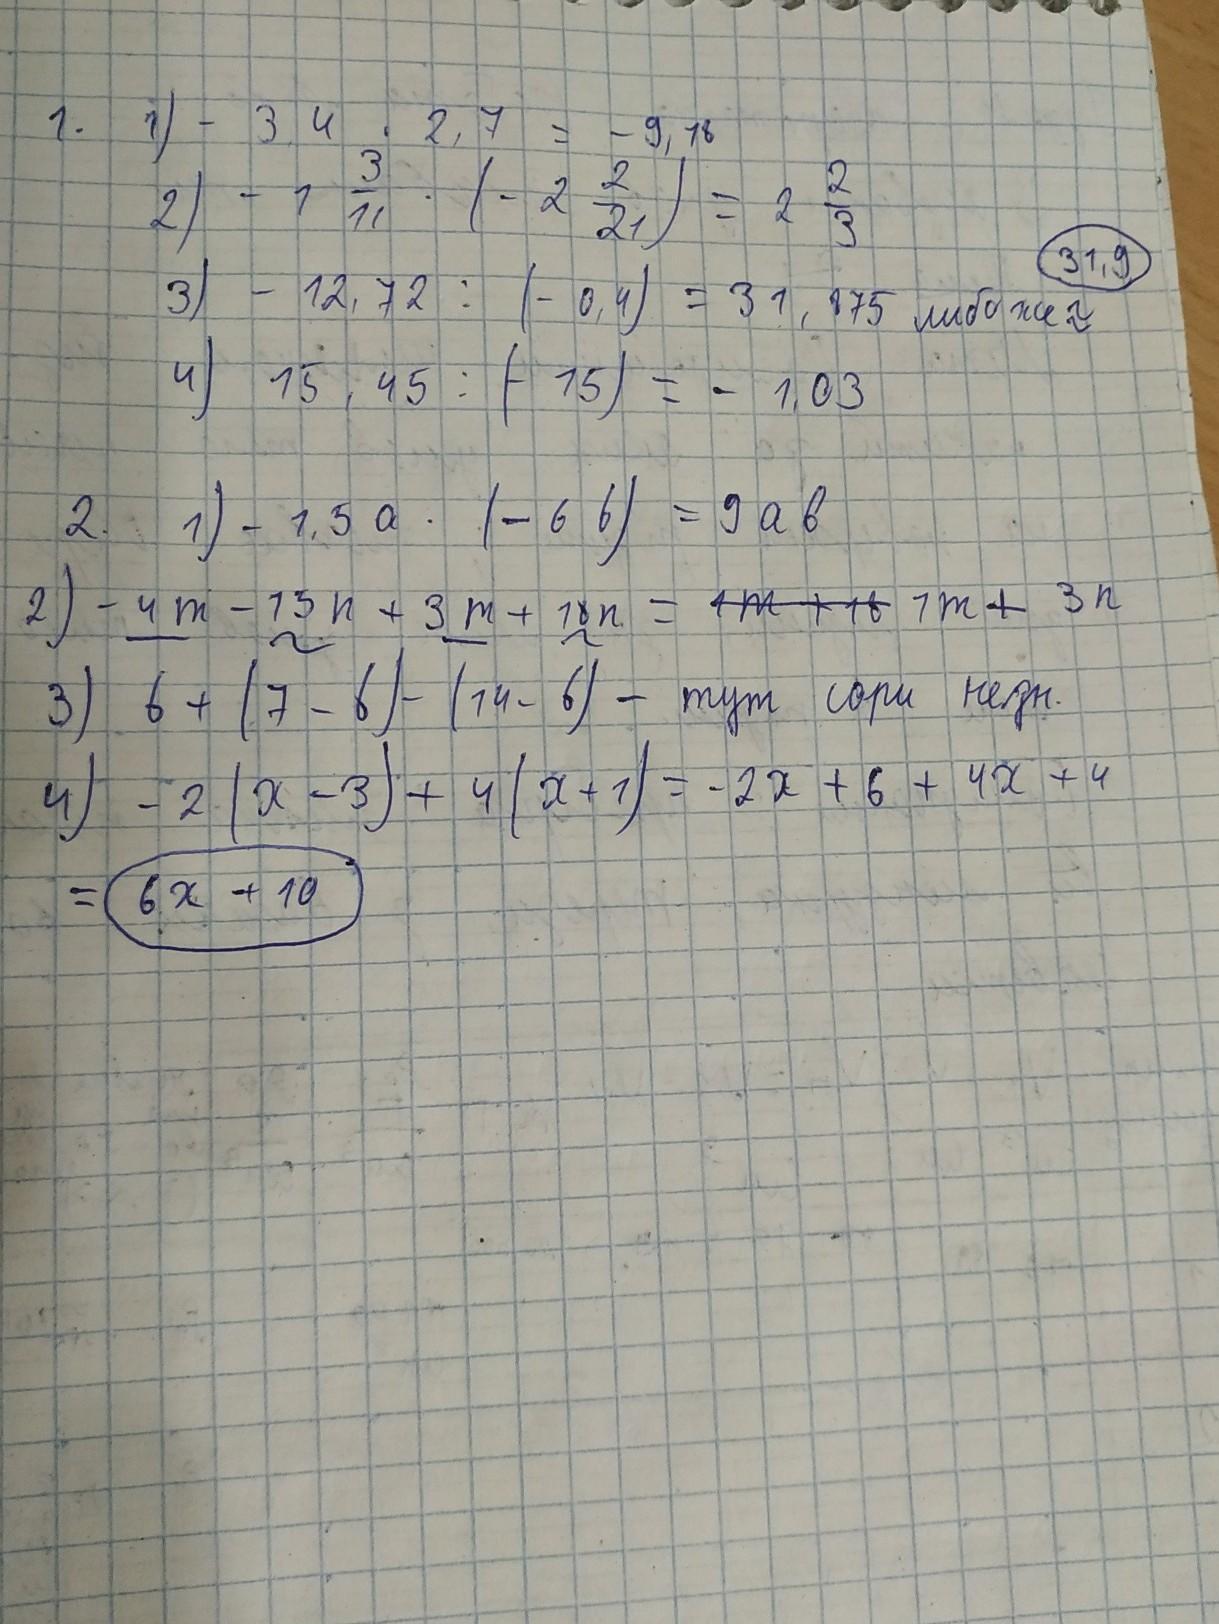 1. 1) - 3,4 . 2,7 = - 9,18
2) - 1 3/11 . (- 2 2/21) = 2 2/3
31,9
3) - 12,72 : (- 0,4) = 31,875 либо же ≈
4) 15,45 : (- 15) = - 1,03
2. 1) - 1,5 a . (- 6 b) = 9 a b
2) - 4 m - 15 n + 3 m + 18 n = 1m + 18 1m + 3n
3) b + (7 - b) - (14 - b) - тут сори незн.
4) - 2 (x - 3) + 4 (x + 1) = - 2x + 6 + 4x + 4
= 6x + 10